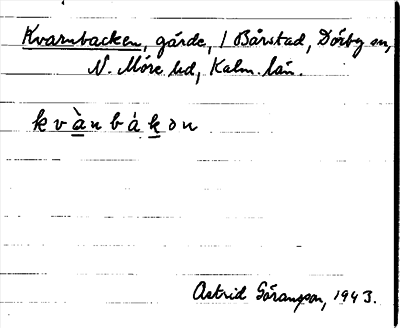 Kvarnbacken, gärde, 1 Bårstad, Dörby sn,
N. Möre hd, Kalm. län.
kvànbákən
Astrid Göranson, 1943.